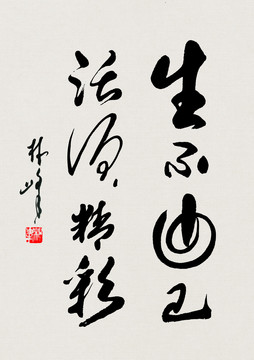 生不由己
活得精彩
林峰